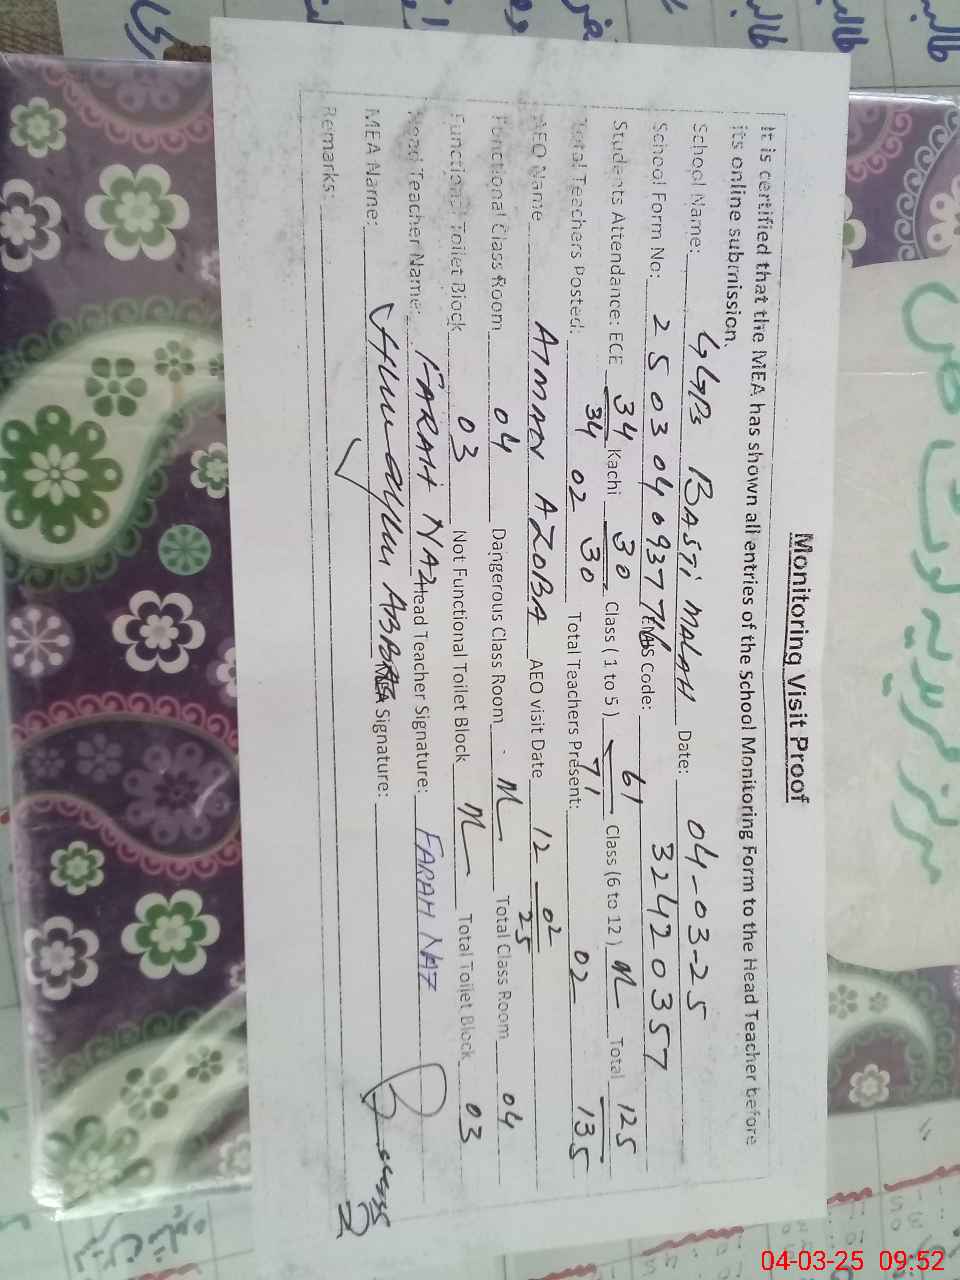 Monitoring Visit Proof
It is certified that the MEA has shown all entries of the School Monitoring Form to the Head Teacher before
its online submission.
School Name: GGPS BASTI MALAH Date: 04-03-25
School Form No: 2503040937776 EMIS Code: 32420357
Students Attendance: ECE 34/34 Kachi 30/30 Class ( 1 to 5 ) 61/71 Class (6 to 12 ) Total 125/135
Total Teachers Posted: 02 Total Teachers Present: 02
AEO Name AIMAN AZOBA AEO visit Date 12 02 25
Functional Class Room 04 Dangerous Class Room Total Class Room 04
Functional Toilet Block 03 Not Functional Toilet Block Total Toilet Block 03
Head Teacher Name: FARAH NAZ Head Teacher Signature: FARAH NAZ
MEA Name: Humayun ABBAS MEA Signature:
Remarks:
04-03-25 09:52